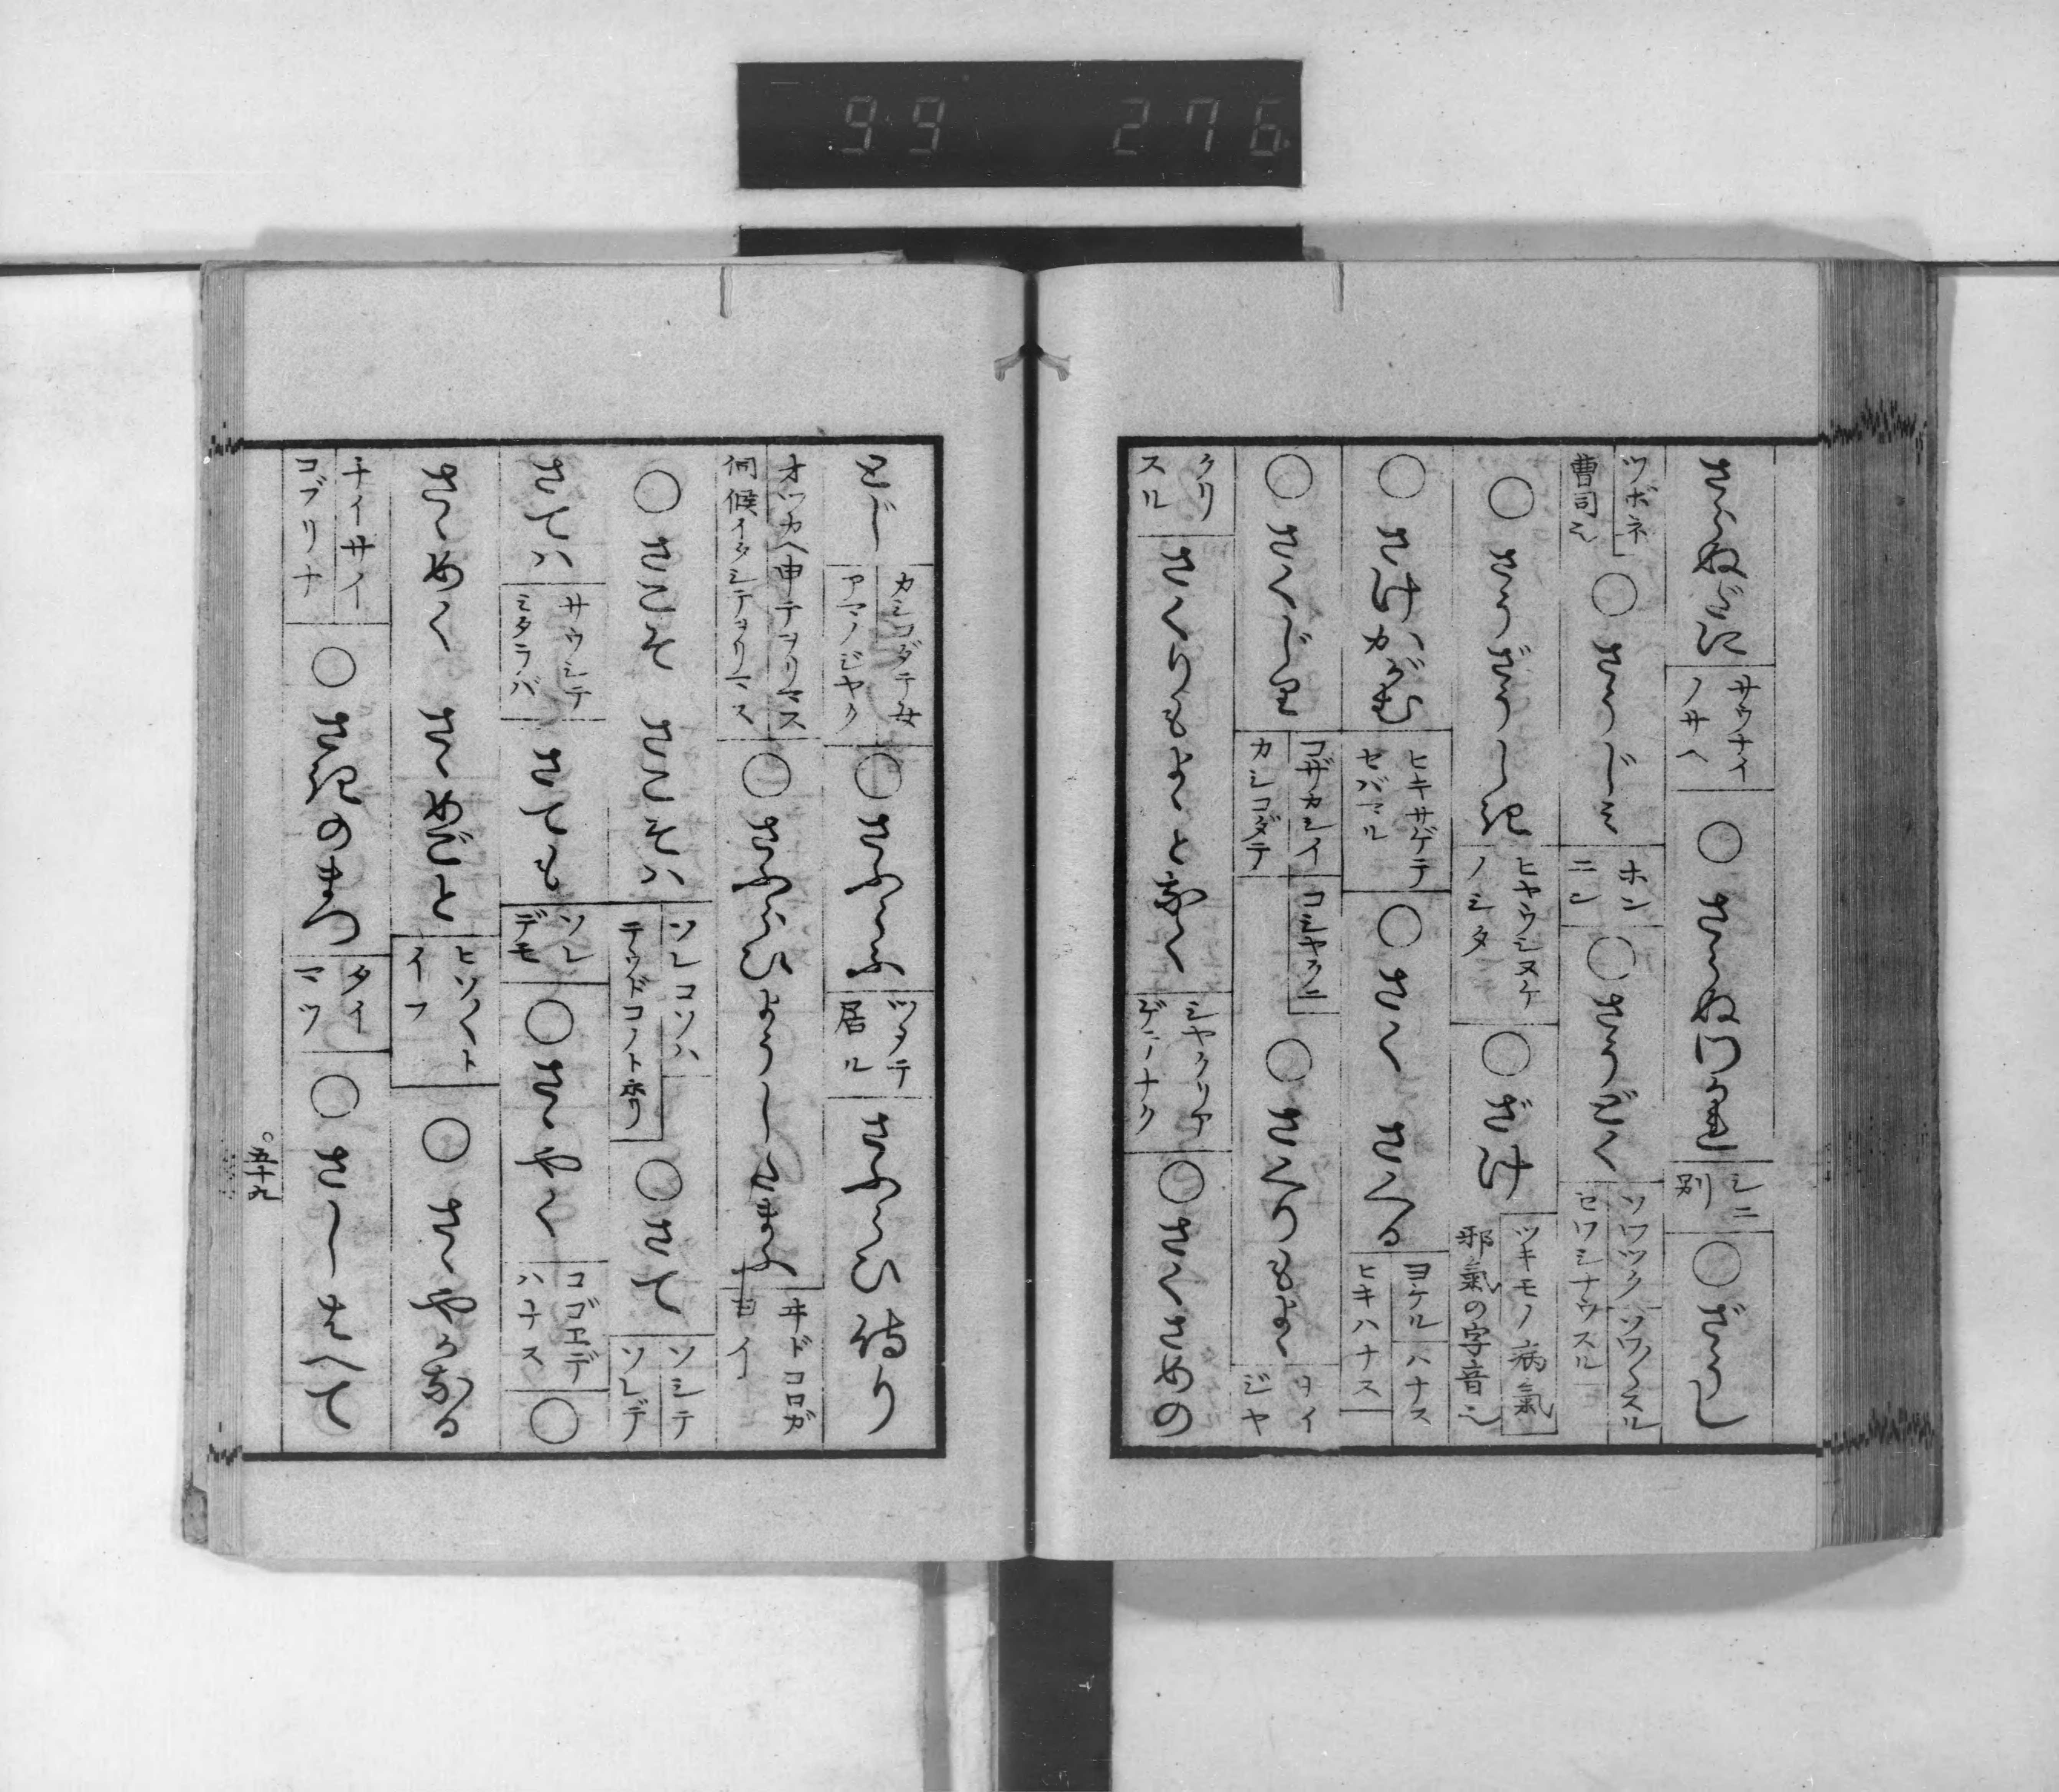 99 276
さらぬだに サウナイノサヘ ○さらぬわかれ シニ別 ○ざうし
ツボネ 曹司也 ○さうじミ ホンニン ○さうどく ソワツク ソワ〳〵スル セワシナウスル
○さうざうしき ヒヤウシヌケノシタ ○ざけ ツキモノ 病氣 邪氣の字音也
○さけかゞむ ヒキサゲテセバマル ○さく さくる ヨケル ハナス ヒキハナス
○さくじり コザカシイ コシヤクニ カシコダテ ○さくりもよゝ ワイジヤ
クリスル さくりもよゝと泣く シヤクリアゲテナク ○さくさめの
とじ カシコダテ女 アマノジヤク ○さふらふ ツメテ居ル さふらひ侍り
オツカヘ申テヲリマス 伺候イタシテヲリマス ○さふらひようしたまふ ヰドコロガヨイ
○さこそ さこそハ ソレコソハ テウドコノトホリ ○さて ソシテ ソレデ
さてハ サウシテミタラバ さても ソレデモ ○さゝやく コゴエデハナス ○
さゝめく さゝめごと ヒソ〳〵トイフ ○さゝやかなる
チイサイ コブリナ ○さきのまつ タイマツ ○さしすへて
五十九